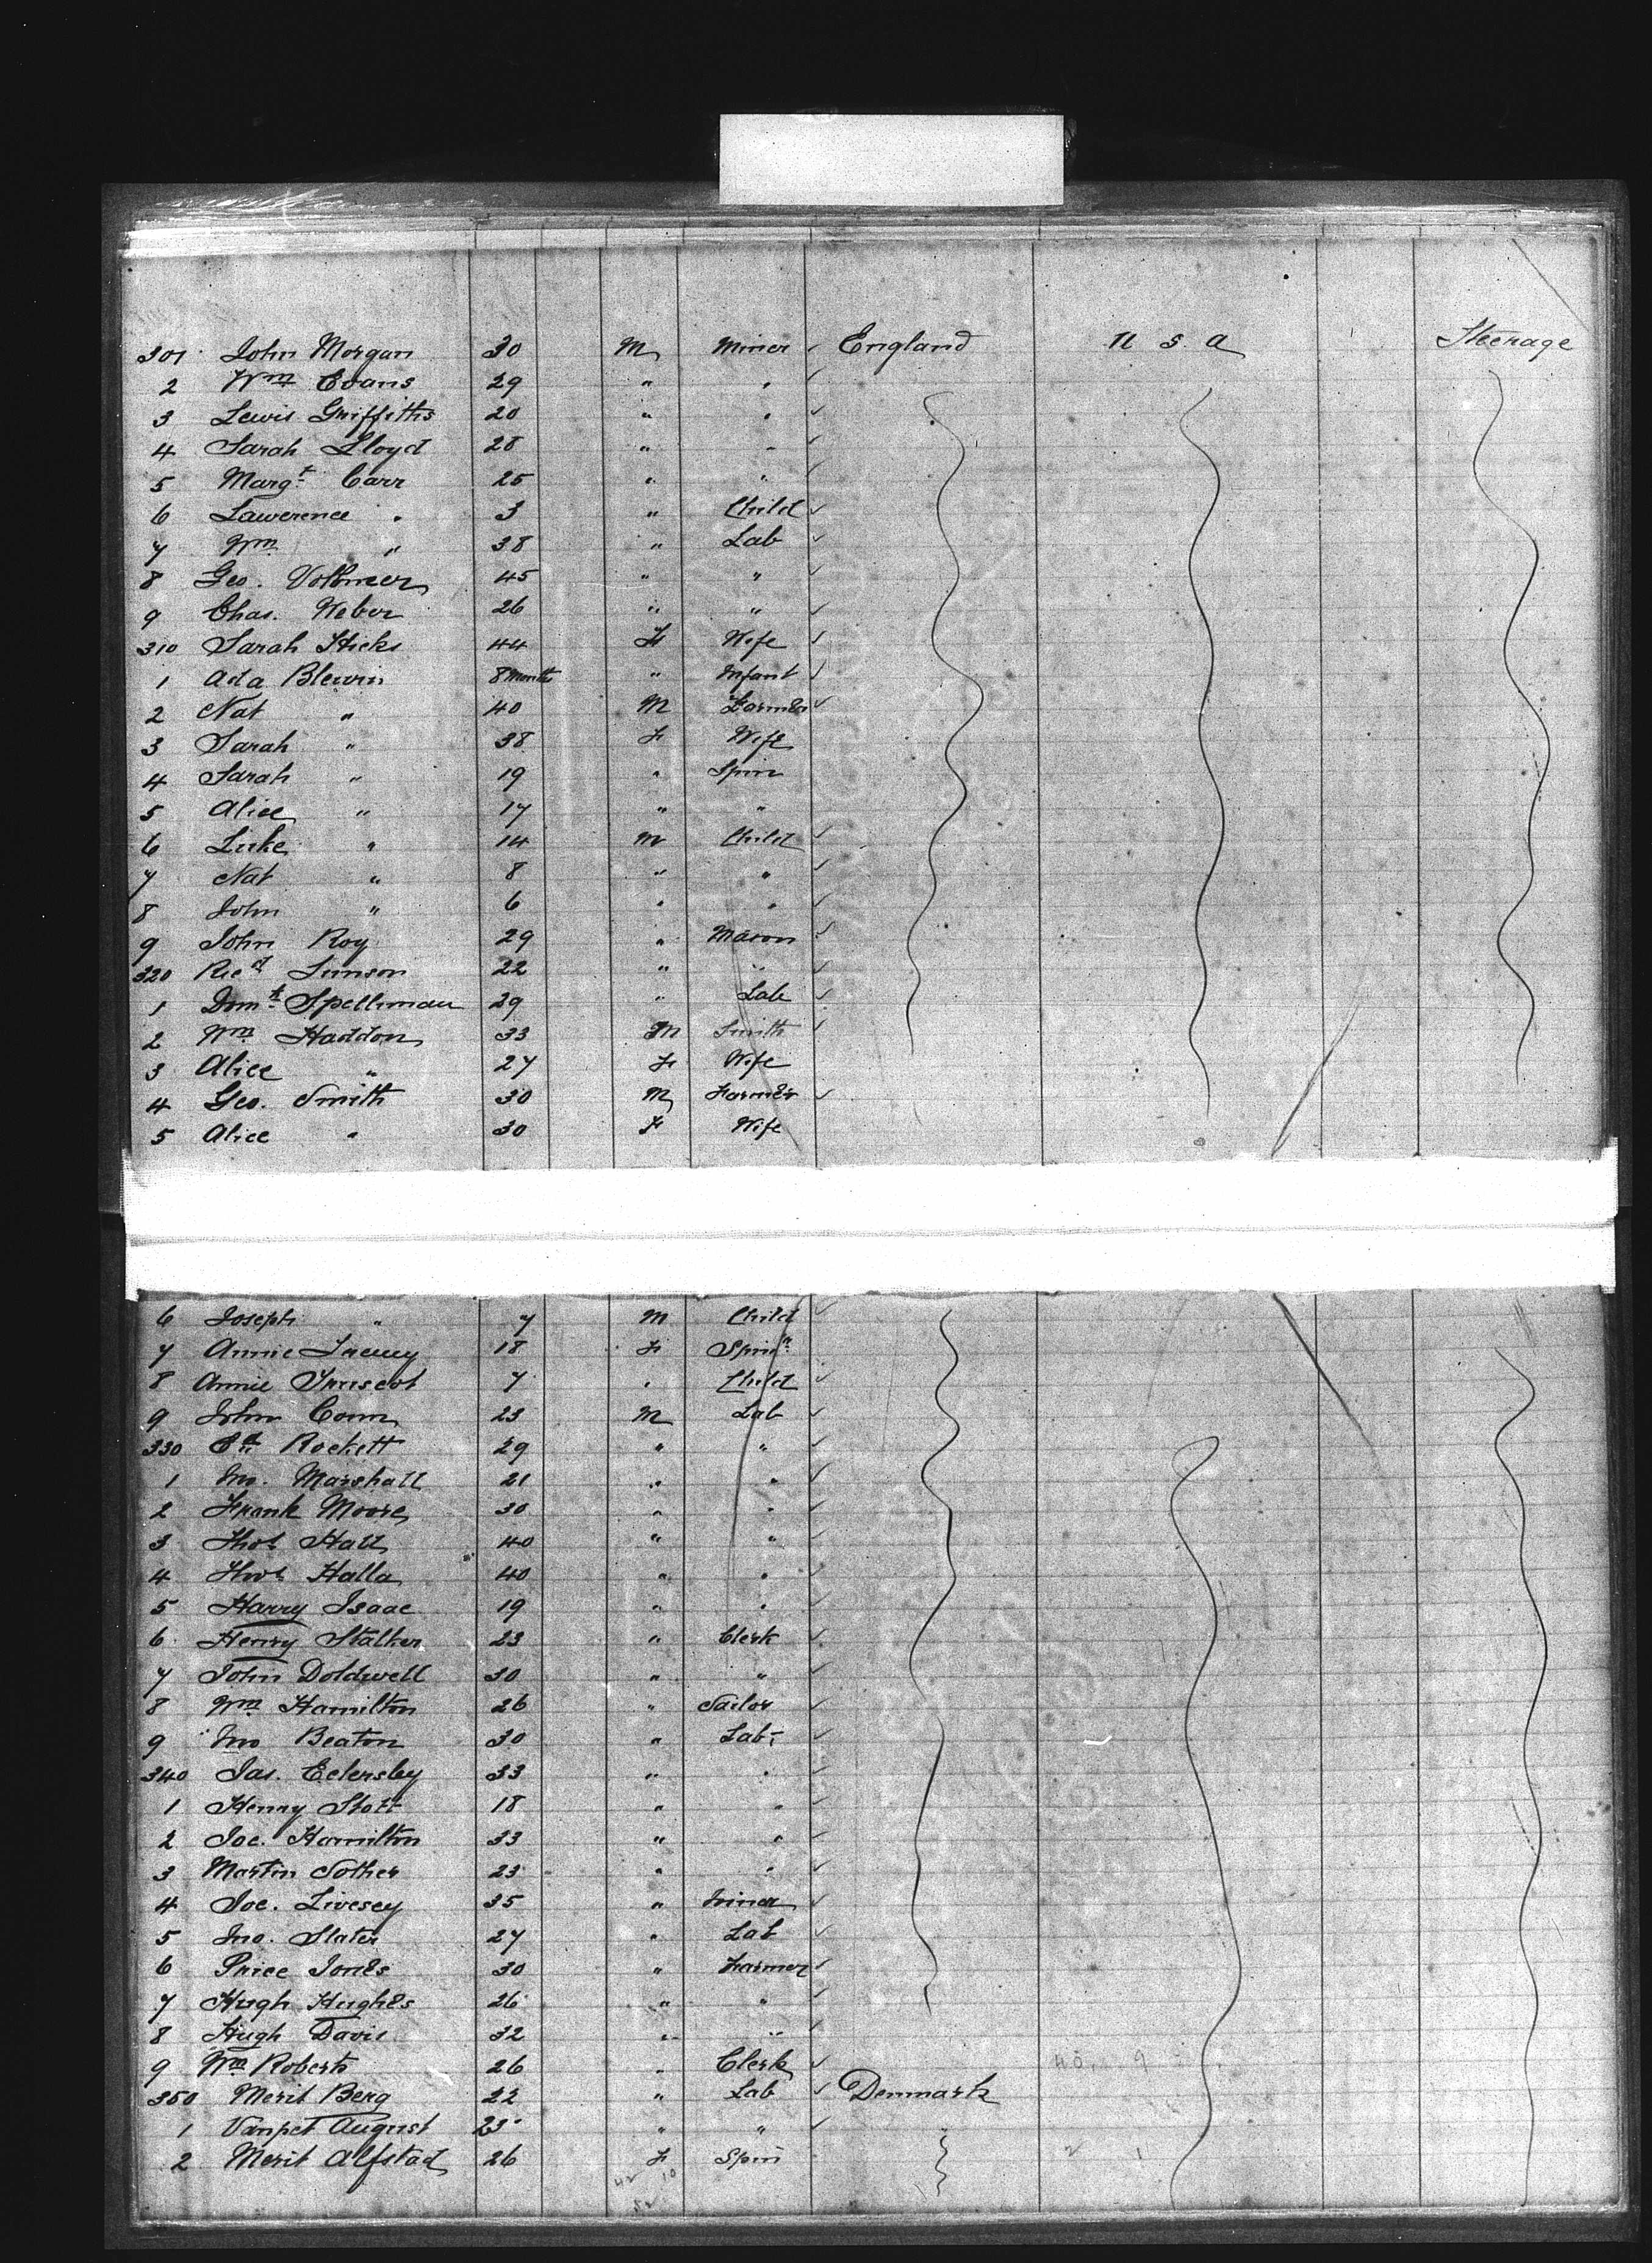 301 John Morgan 30 M Miner ✓ England U S A Steerage
2 Wm Evans 29 " " ✓
3 Lewis Griffiths 20 " " ✓
4 Sarah Lloyd 28 " " ✓
5 Margt Carr 25 " " ✓
6 Lawerence " 3 " Child ✓
7 Wm " 38 " Lab ✓
8 Geo. 45 " " ✓
9 Chas. Weber 26 " " ✓
310 Sarah Hicks 44 F Wife ✓
1 Ada Blewin 8 months " Infant ✓
2 Nat " 40 M Farmer ✓
3 Sarah " 38 F Wife
4 Sarah " 19 " Spin
5 Alice " 17 " "
6 Luke " 14 M Child ✓
7 Nat " 8 " " ✓
8 John " 6 " " ✓
9 John Roy 29 " Mason ✓
320 Ricd Simson 22 " " ✓
1 Domk Spellman 29 " Lab ✓
2 Wm Haddon 33 M Smith ✓
3 Alice " 27 F Wife
4 Geo. Smith 30 M Farmer ✓
5 Alice " 30 F Wife
6 Joseph " 7 M Child ✓
7 Annie 18 F Spinr
8 Annie 7 " Child ✓
9 John Conn 23 M Lab ✓
330 Ed Rockett 29 " " ✓
1 Jno. Marshall 21 " " ✓
2 Frank Moore 30 " " ✓
3 Thos Hall 40 " " ✓
4 Thos Halla 40 " " ✓
5 Harry Isaac 19 " " ✓
6 Henry Stalker 23 " Clerk ✓
7 John Doldwell 30 " " ✓
8 Wm Hamilton 26 " Sailor ✓
9 Jno Beaton 30 " Lab ✓
340 Jas. Edersley 33 " " ✓
1 Henry Stott 18 " " ✓
2 Joe. Hamilton 33 " " ✓
3 Martin Sother 23 " " ✓
4 Joe. Livesey 35 " Miner ✓
5 Jno. Slater 27 " Lab ✓
6 Price Jones 30 " Farmer ✓
7 Hugh Hughes 26 " " ✓
8 Hugh Davis 32 " " ✓
9 Wm Roberts 26 " Clerk ✓
350 Merit Berg 22 " Lab ✓ Denmark
1 Vanpet August 23 " " ✓
2 Merit Alfstad 26 F Spin